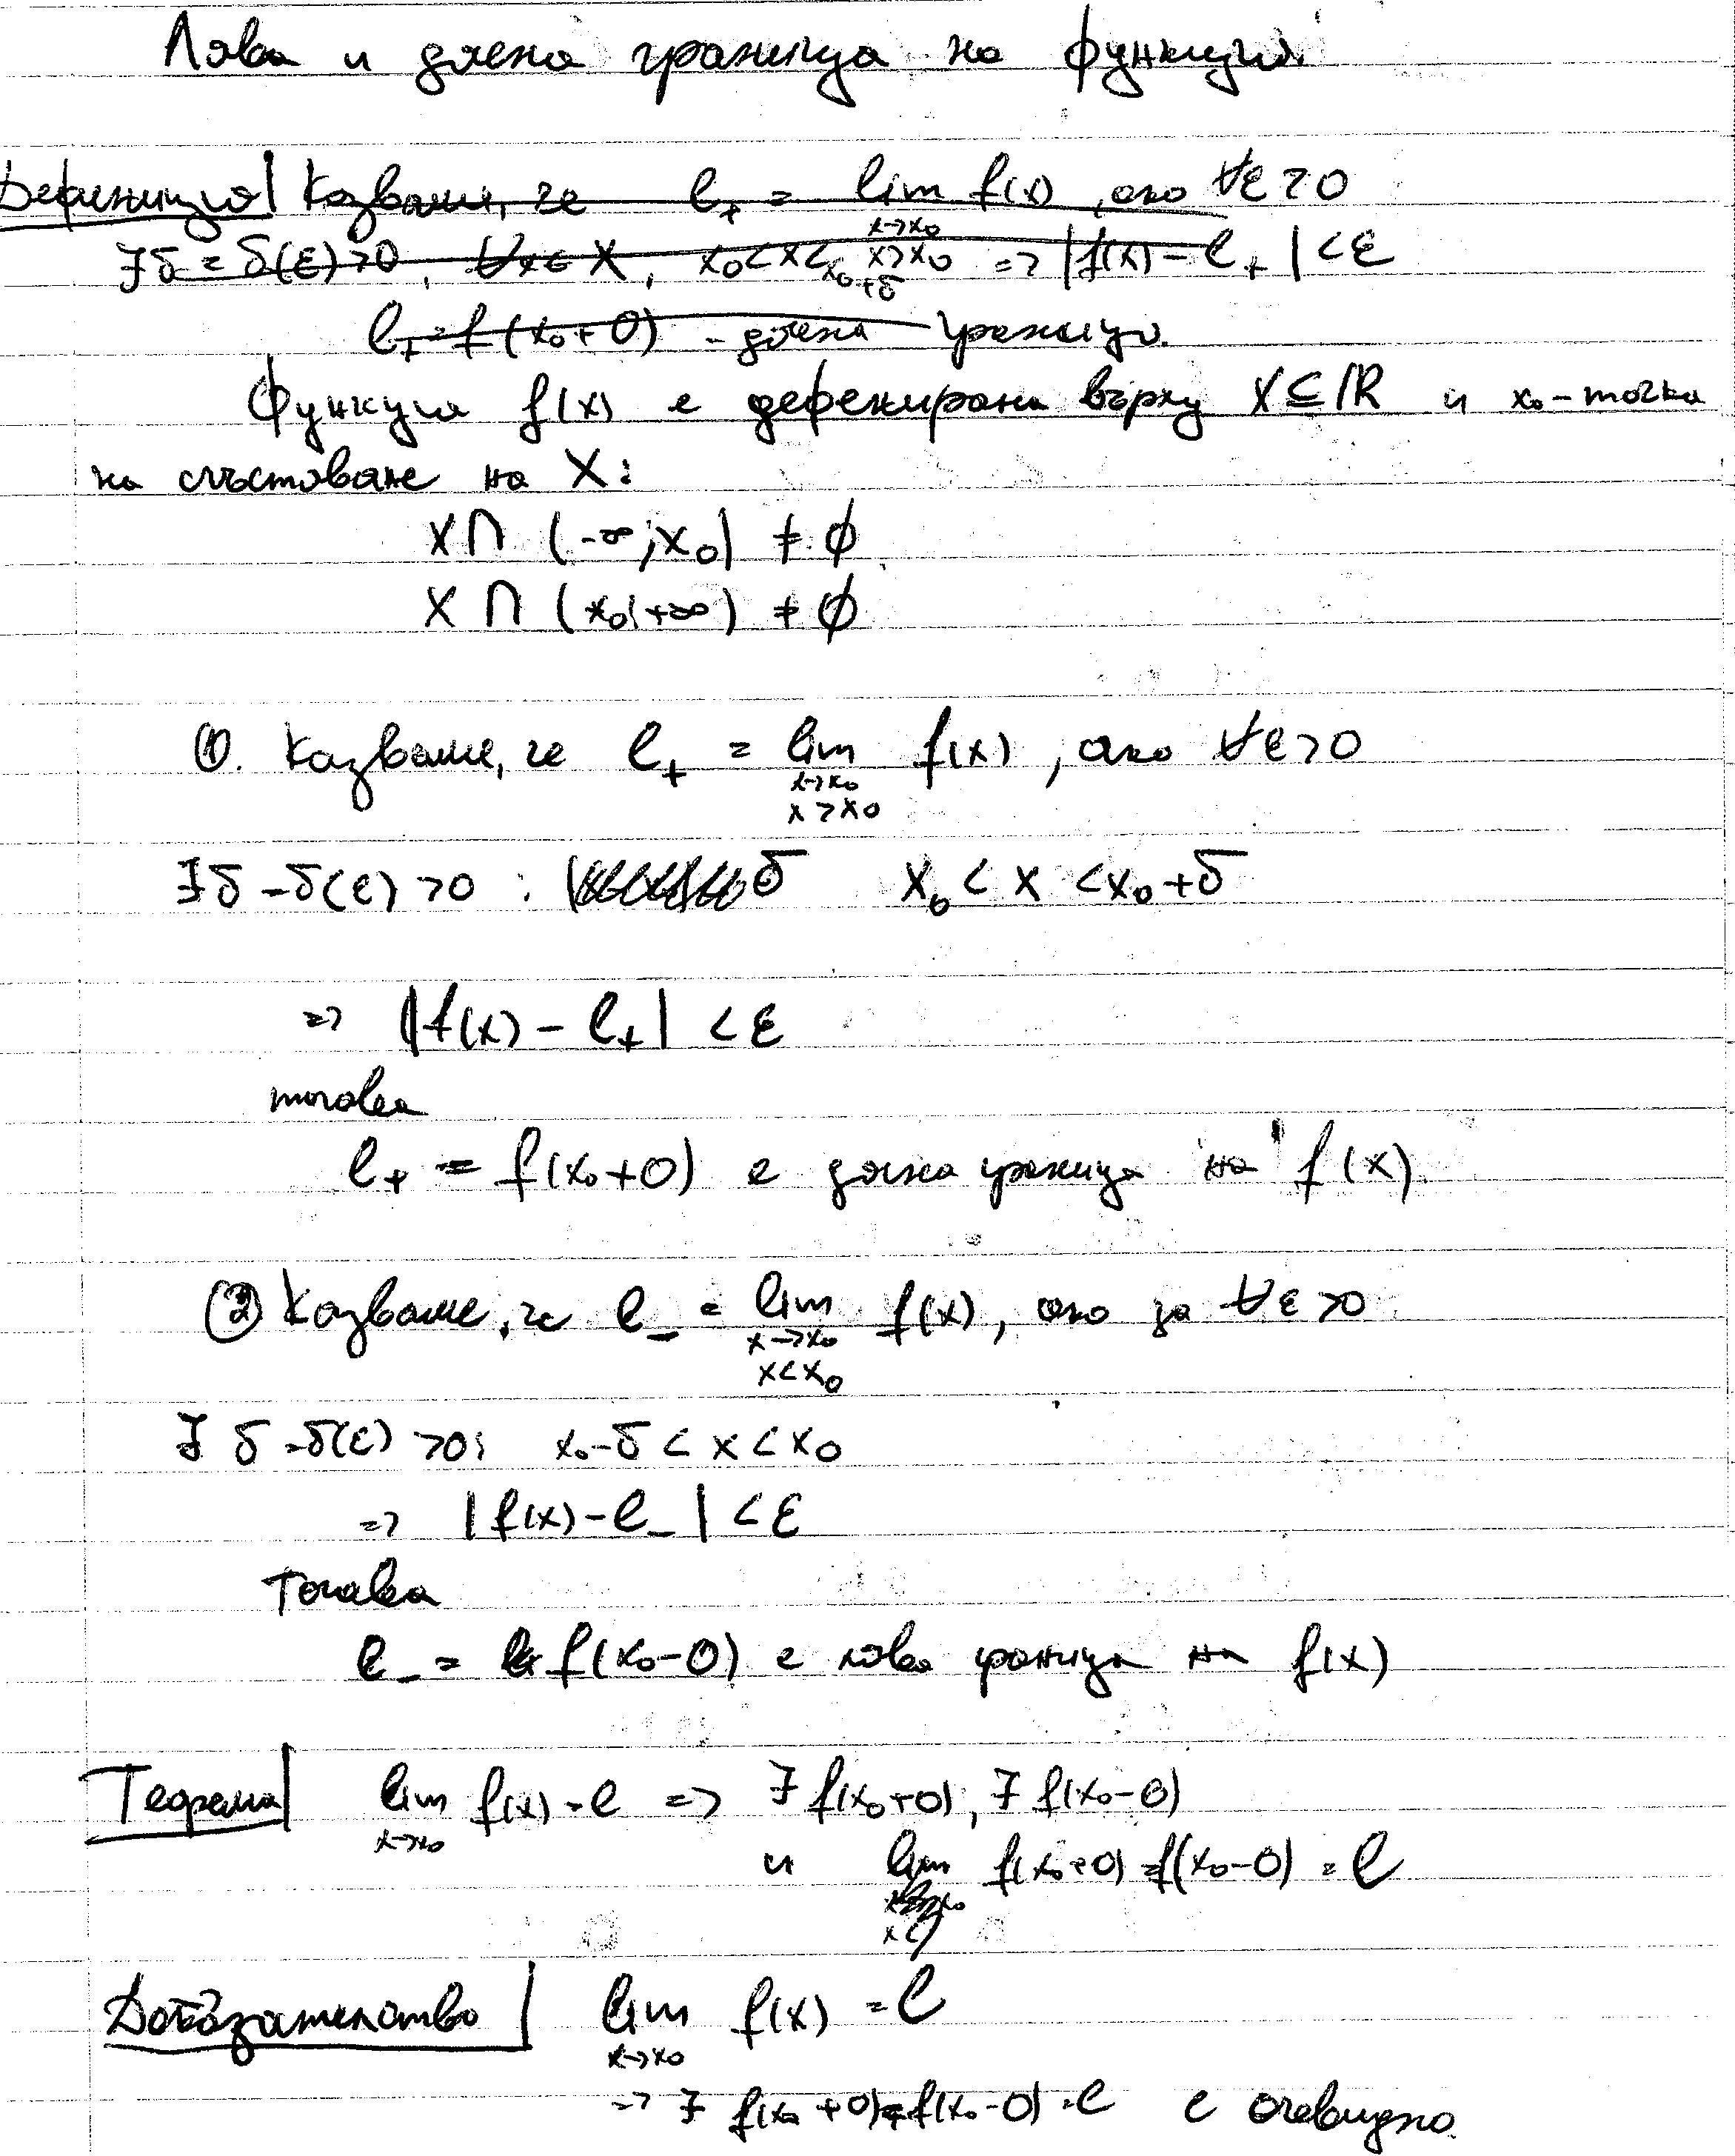 Лява и дясна граница на функция.
Дефеницил Казваме, че l₊ = lim f(x), ако ∀ε>0
x→x₀
∃δ = δ(ε)>0, ∀x∈X, x₀<x<x₀+δ x>x₀ => |f(x)-l₊|<ε
l₊=f(x₀+0) - дясна граница.
Функция f(x) е дефенирана върху X⊆ℝ и x₀-точка
на сгъстяване на X:
X∩ (-∞;x₀) ≠ ∅
X ∩ (x₀;+∞) ≠ ∅
①. Казваме, че l₊ = lim f(x), ако ∀ε>0
x→x₀
x>x₀
∃δ=δ(ε)>0 : δ x₀<x<x₀+δ
=> |f(x)-l₊| <ε
тогава
l₊ = f(x₀+0) е дясна граница на f(x).
② Казваме, че l₋ = lim f(x), ако за ∀ε>0
x→x₀
x<x₀
∃ δ=δ(ε) >0; x₀-δ<x<x₀
=> |f(x)-l₋|<ε
Тогава
l₋ = f(x₀-0) е лява граница на f(x)
Теорема lim f(x)=l => ∃ f(x₀+0), ∃ f(x₀-0)
x→x₀
и lim f(x₀+0)=f(x₀-0)=l
Доказателство lim f(x)=l
x→x₀
=> ∃ f(x₀+0)=f(x₀-0)=l е очевидно.